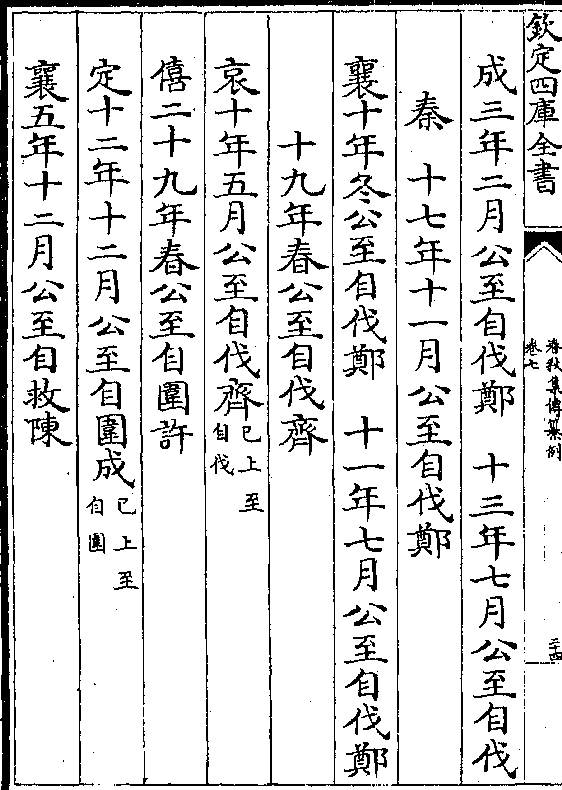 欽定四庫全書
春秋集傳纂例
卷七
二十四
成三年二月公至自伐鄭　十三年七月公至自伐
秦　十七年十一月公至自伐鄭
襄十年冬公至自伐鄭　十一年七月公至自伐鄭
十九年春公至自伐齊
哀十年五月公至自伐齊已上至自伐
僖二十九年春公至自圍許
定十二年十二月公至自圍成已上至自圍
襄五年十二月公至自救陳